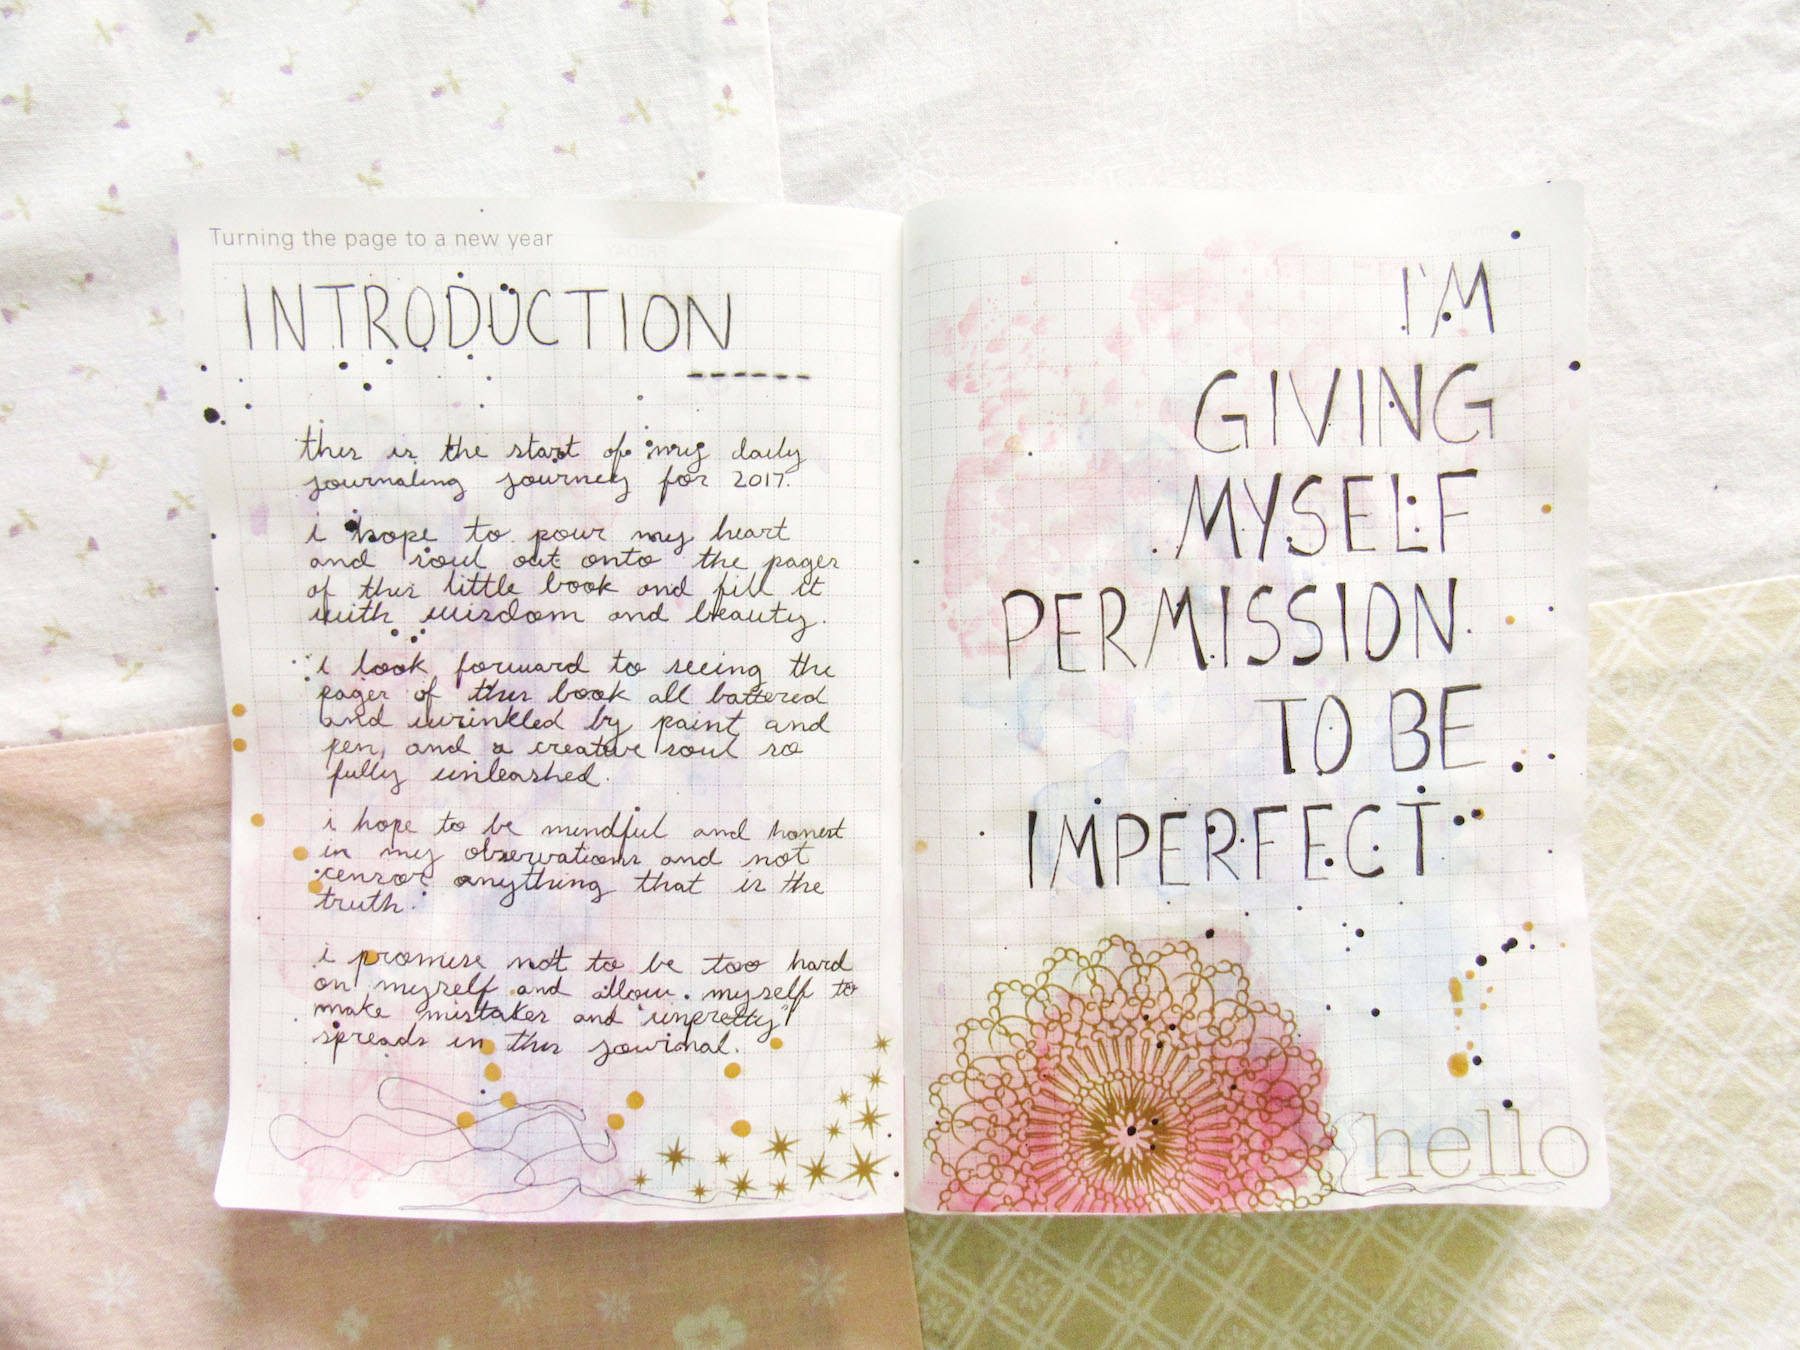 Turning the page to a new year
INTRODUCTION
this is the start of my daily
journaling journey for 2017.
i hope to pour my heart
and soul out onto the pages
of this little book and fill it
with wisdom and beauty.
i look forward to seeing the
pages of this book all battered
and wrinkled by paint and
pen, and a creative soul so
fully unleashed.
i hope to be mindful and honest
in my observations and not
censor anything that is the
truth.
i promise not to be too hard
on myself and allow myself to
make mistakes and "unpretty"
spreads in this journal.
I'M
GIVING
MYSELF
PERMISSION
TO BE
IMPERFECT
hello